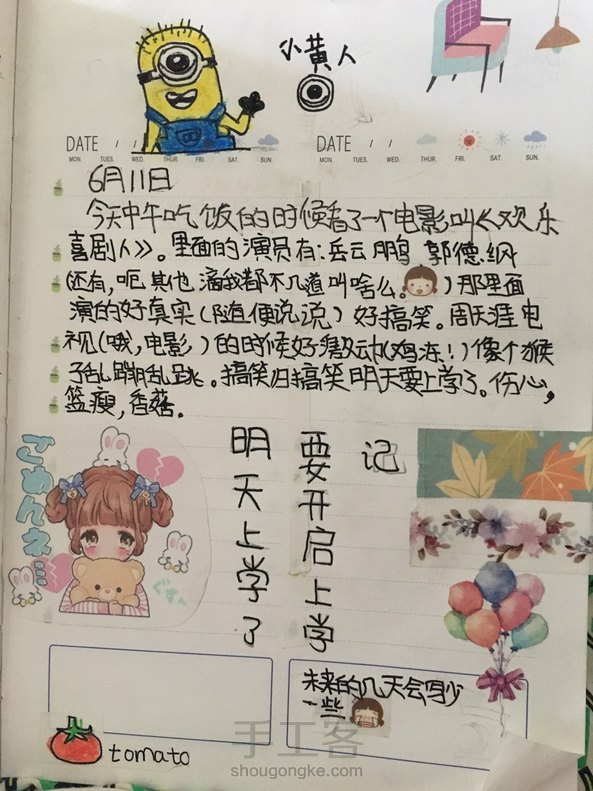 小黄人
DATE / /
MON. TUES. WED. THUR. FRI. SAT. SUN.
DATE / /
MON. TUES. WED. THUR. FRI. SAT. SUN.
6月11日
今天中午吃饭的时候看了一个电影叫《欢乐
喜剧人》。里面的演员有:岳云鹏 郭德纲
(还有,呃 其他 演我都不几道叫啥么。)那里面
演的好真实(随便说说)好搞笑。周天涯电
视(哦,电影)的时候好激动(鸡冻!)像个猴
子乱蹦乱跳。搞笑归搞笑明天要上学了。伤心,
篮瘦,香菇。
ごめんネ...
ぐすん
明天上学了
要开启上学
记
未来的几天会写少
一些
tomato
手工客
shougongke.com